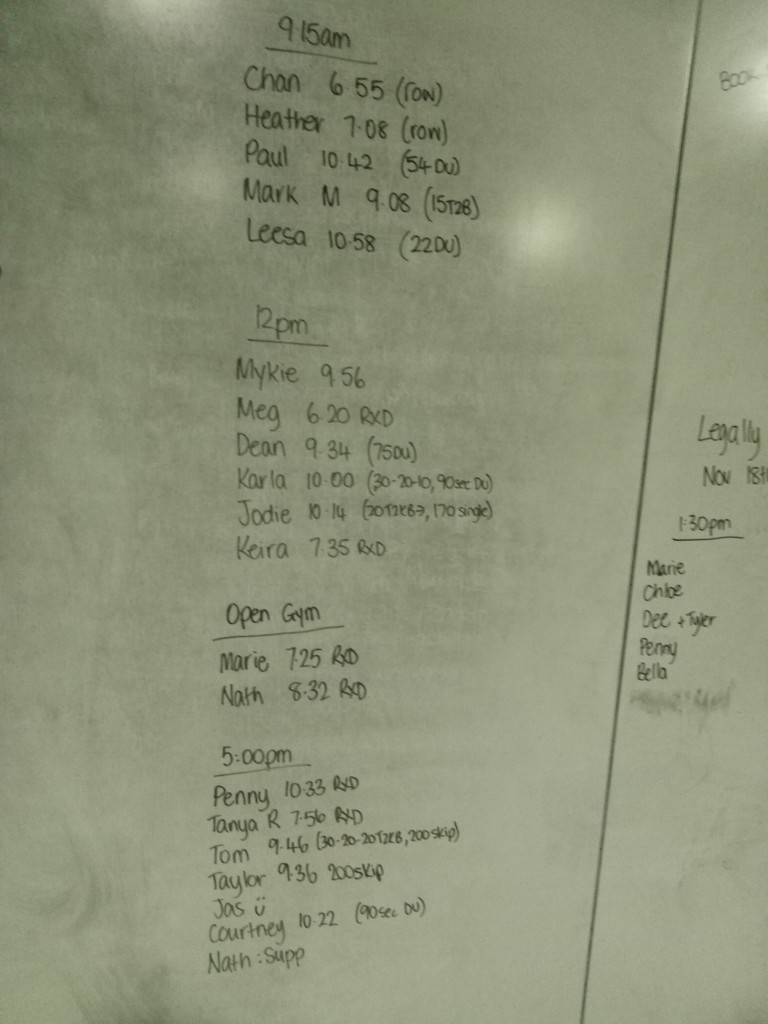 9.15am
Chan 6.55 (row)
Heather 7.08 (row)
Paul 10.42 (54DU)
Mark M 9.08 (15T2B)
Leesa 10.58 (22DU)
12pm
Mykie 9.56
Meg 6.20 RXD
Dean 9.34 (75DU)
Karla 10.00 (30-20-10, 90sec DU)
Jodie 10.14 170 single)
Keira 7.35 RXD
Open Gym
Marie 7.25 RXD
Nath 8.32 RXD
5:00pm
Penny 10.33 RXD
Tanya R 7.56 RXD
Tom 9.46 (30-20-20T2EB, 200skip)
Taylor 9.36 200skip
Jas ü
Courtney 10.22 (90sec DU)
Nath : Supp
BOOK
Legally
Nov 18th
1:30pm
Marie
Chloe
Dee + Tyler
Penny
Bella